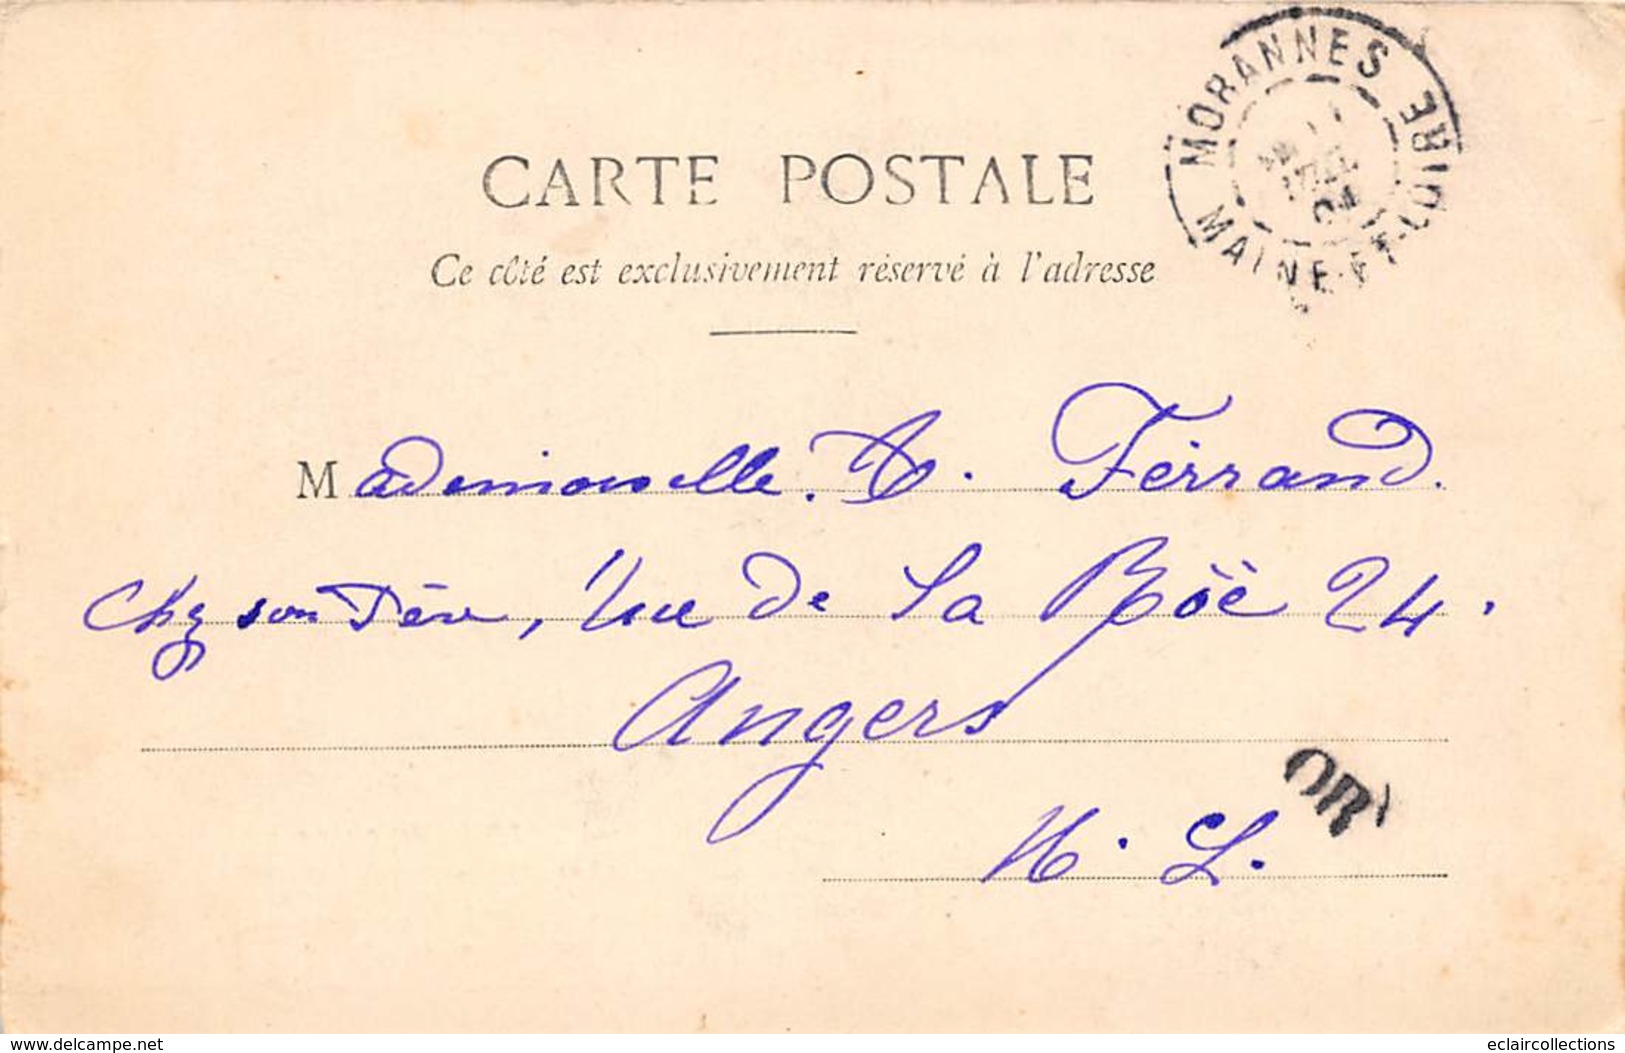 MORANNES
MAINE-ET-LOIRE
CARTE POSTALE
Ce côté est exclusivement réservé à l'adresse
Mademoiselle A. Ferrand.
Chez son Père, rue de la Roë 24.
Angers
M. L.
OR
www.delcampe.net
eclaircollections